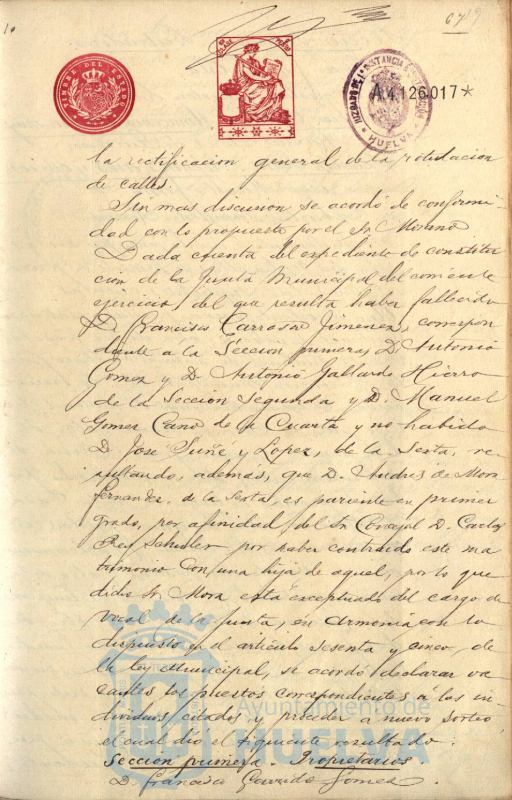 679
TIMBRE DEL ESTADO
HUELVA
A4.126.017*
la rectificacion general de la rotulacion
de calles.
Sin mas discusion se acordó de conformi-
dad con lo propuesto por el Sr Moreno
Dada cuenta del expediente de constitu-
cion de la Junta Municipal del corriente
ejercicio del que resulta haber fallecido
D. Francisco Carrasco Jimenez, correspon
diente a la Sección primera, D. Antonio
Gomez y D. Antonio Gallardo Hierro
de la Seccion Segunda y D. Manuel
Gomez Cano de la Cuarta y no habido
D. José Suñé y Lopez, de la Sexta, re-
sultando, además, que D. Andrés de Mora
Fernandez, de la Sexta, es pariente en primer
grado, por afinidad, del Sr Concejal D. Carlos
Rey por haber contraido este ma
trimonio con una hija de aquel, por lo que
dicho Sr. Mora está exceptuado del cargo de
vocal de la Junta, en armonia con lo
dispuesto en el artículo sesenta y cinco, de
la ley Municipal, se acordó declarar va
cantes los puestos correspondientes á los in-
dividuos citados y proceder a nuevo sorteo
el cual dió el siguiente resultado.
Sección primera - Propietarios
D. Francisco Garrido Gomez.
Ayuntamiento de
HUELVA